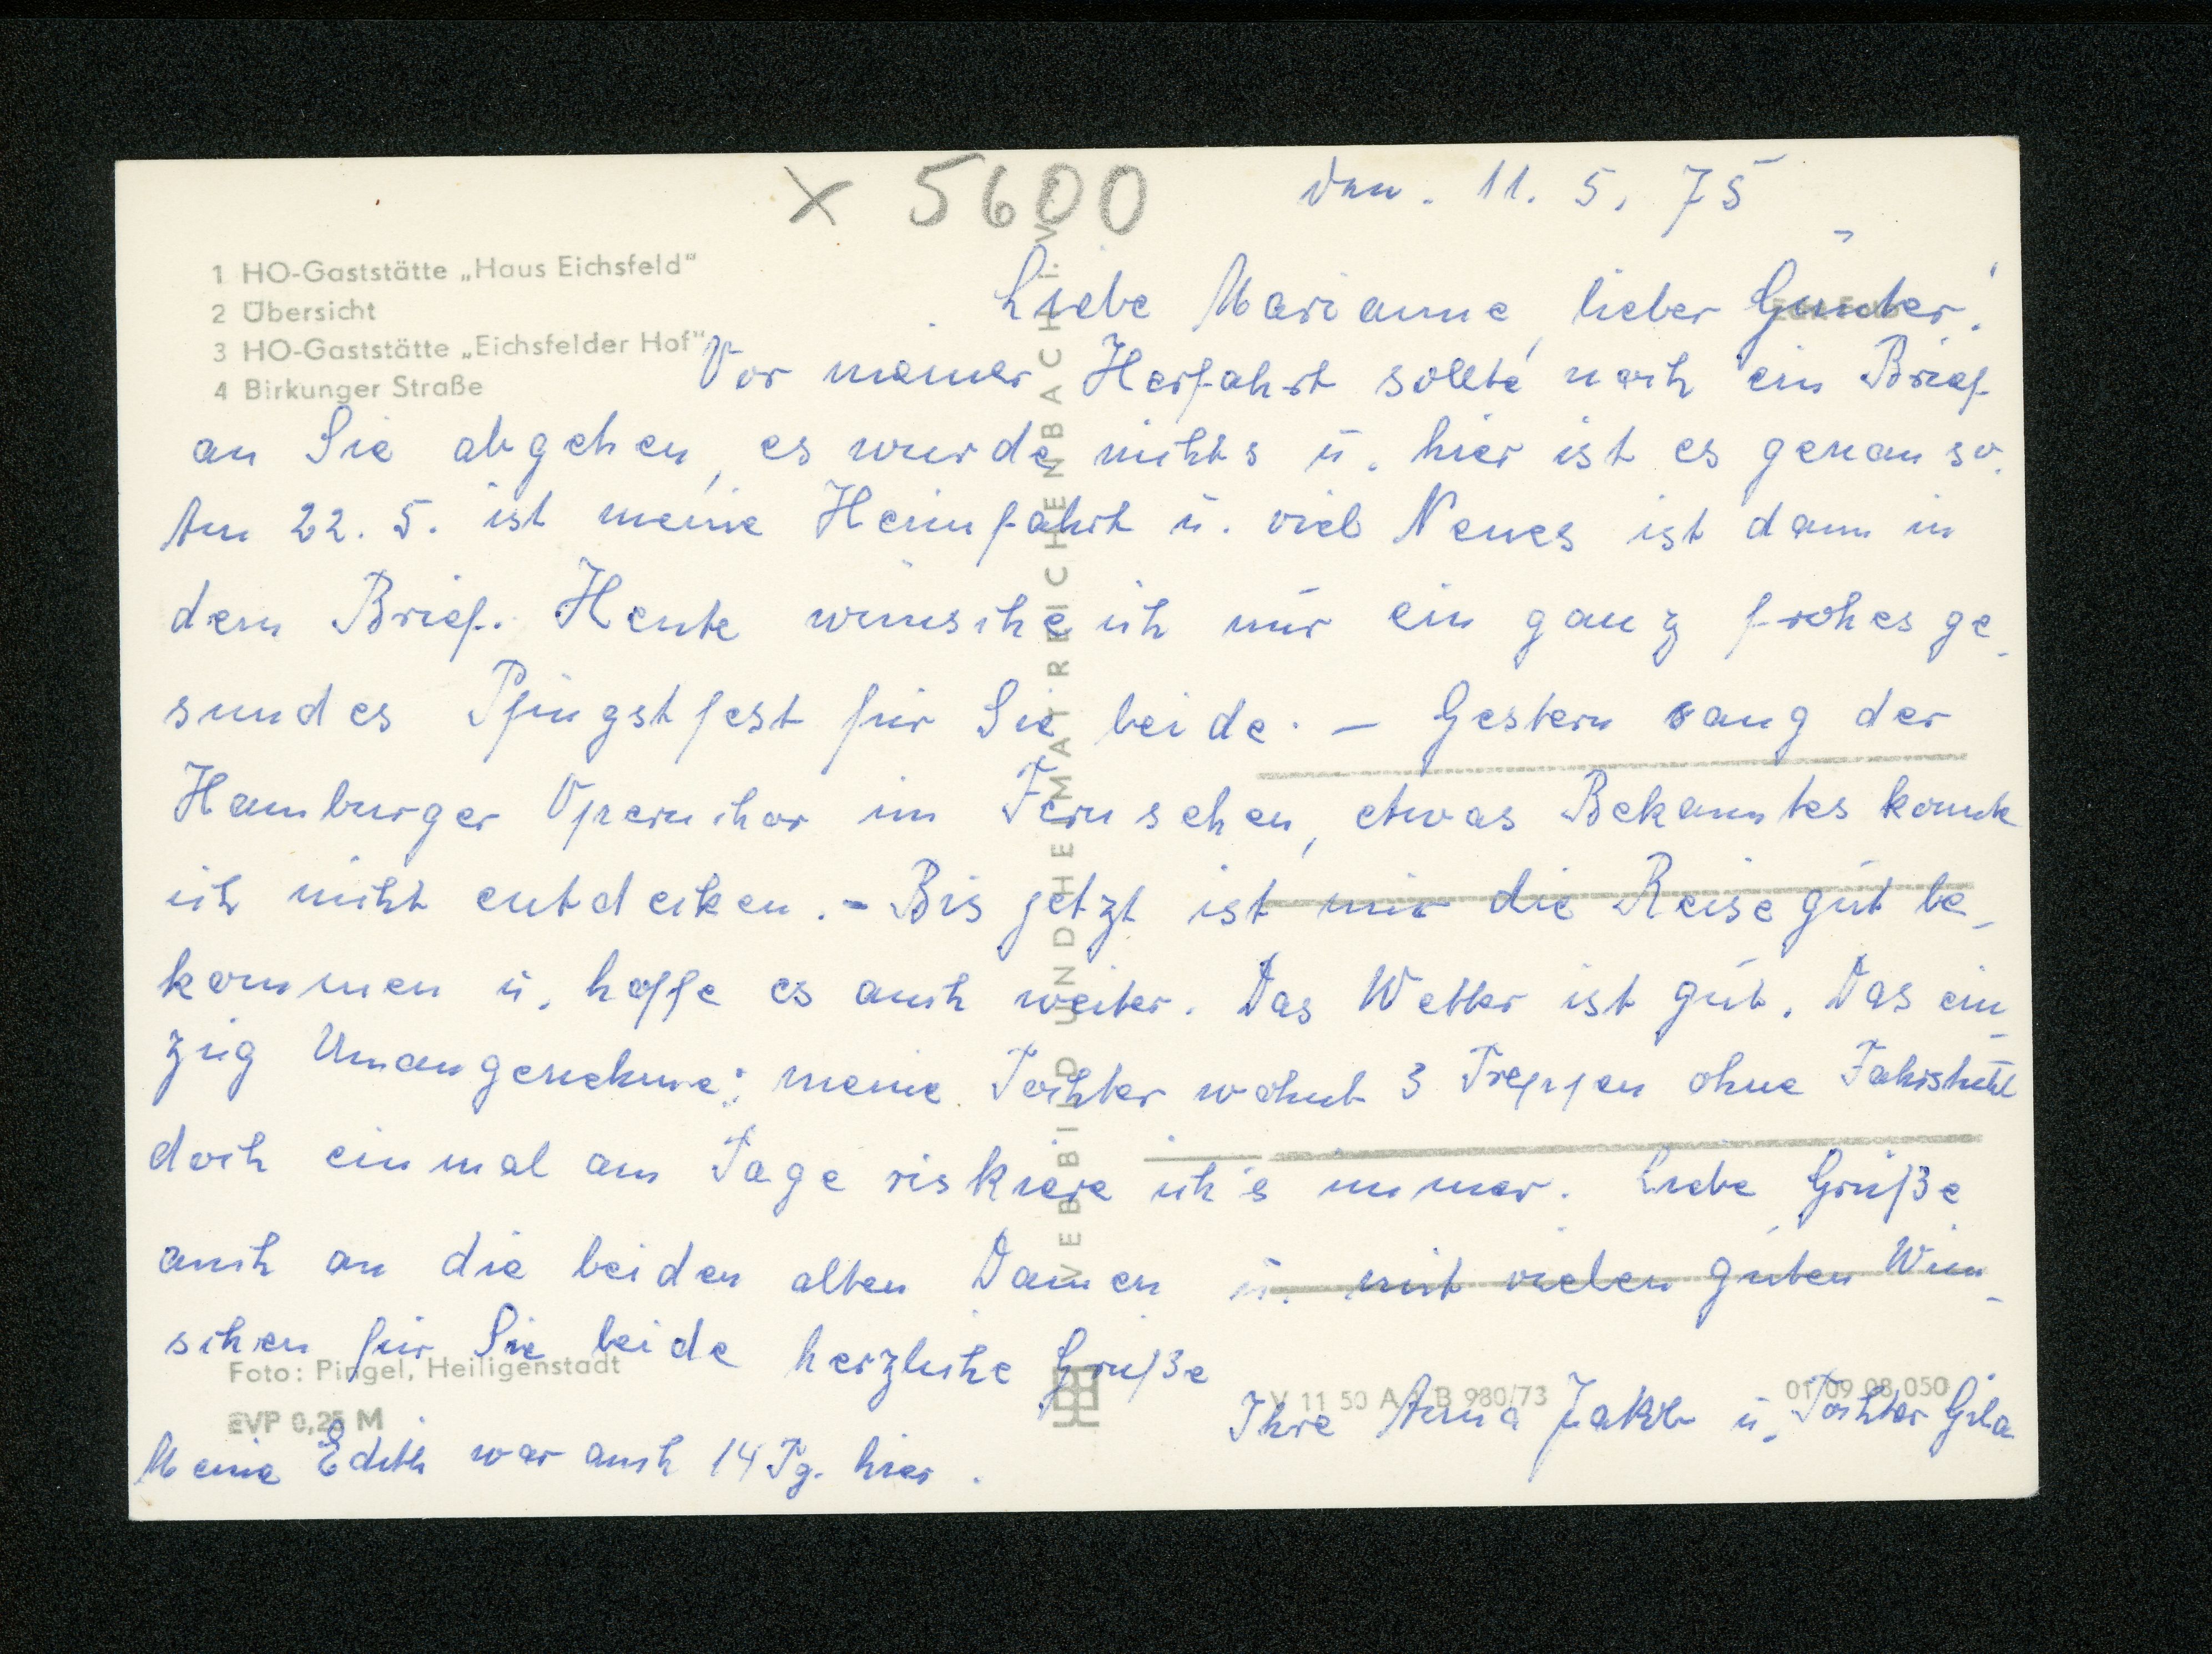 x 5600
den. 11. 5. 75
1 HO-Gaststätte „Haus Eichsfeld“
2 Übersicht
3 HO-Gaststätte „Eichsfelder Hof“
4 Birkunger Straße
Liebe Marianne, lieber Günter!
Vor meiner Herfahrt sollte noch ein Brief
an Sie abgehen, es wurde nichts u. hier ist es genau so.
Am 22. 5. ist meine Heimfahrt u. viel Neues ist dann in
dem Brief. Heute wünsche ich nur ein ganz frohes ge-
sundes Pfingstfest für Sie beide. – Gestern sang der
Hamburger Opernchor im Fernsehen, etwas Bekanntes konnte
ich nicht entdecken. – Bis jetzt ist mir die Reise gut be-
kommen u. hoffe es auch weiter. Das Wetter ist gut. Das ein-
zig Unangenehme: meine Tochter wohnt 3 Treppen ohne Fahrstuhl
doch einmal am Tage riskiere ich's immer. Liebe Grüße
auch an die beiden alten Damen u. mit vielen guten Wün-
schen für Sie beide herzliche Grüße
Ihre Anna Jakob u. Tochter Gila
Meine Edith war auch 14 Tg. hier.
Foto: Pingel, Heiligenstadt
EVP 0,25 M
V 11 50 A 1 B 980/73
01 09 08 050
VEB BILD UND HEIMAT REICHENBACH i. V.